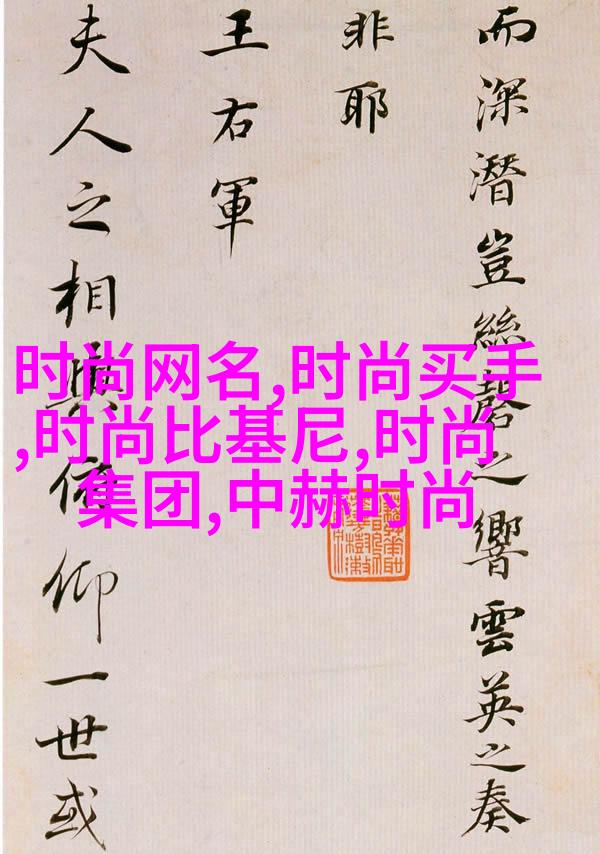 而深潛豈絲磬之響雲英之奏
非耶
王右軍
夫人之相與俯仰一世或
时尚网名,时尚买手
,时尚比基尼,时尚
集团,中赫时尚